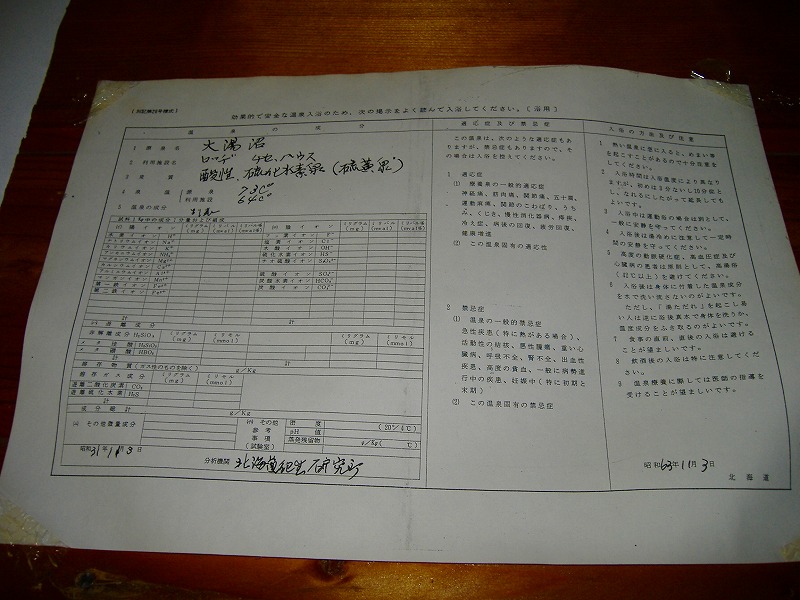 効果的で安全な温泉入浴のため、次の掲示をよく読んで入浴してください。(浴用)
温泉の成分
1 源泉名 大湯沼
2 利用施設名
3 泉質 酸性 硫化水素泉 (硫黄泉)
4 泉温 源泉 73C°
利用施設 64C°
5 温泉の成分
試料1kg中の成分、分量および組成
(イ) 陽イオン ミリグラム (mg) ミリバル (mval) ミリバル%
水素イオン H⁺
ナトリウムイオン Na⁺
カリウムイオン K⁺
アンモニウムイオン NH₄⁺
マグネシウムイオン Mg²⁺
カルシウムイオン Ca²⁺
アルミニウムイオン Al³⁺
マンガンイオン Mn²⁺
第一鉄イオン Fe²⁺
第二鉄イオン Fe³⁺
計
(ロ) 陰イオン ミリグラム (mg) ミリバル (mval) ミリバル%
フッ素イオン F⁻
塩素イオン Cl⁻
水酸イオン OH⁻
硫化水素イオン HS⁻
チオ硫酸イオン S₂O₃²⁻
硫酸イオン SO₄²⁻
炭酸水素イオン HCO₃⁻
炭酸イオン CO₃²⁻
計
(ハ) 遊離成分
非解離成分 ミリグラム (mg) ミリモル (mmol)
メタケイ酸 H₂SiO₃
メタホウ酸 HBO₂
計
溶存物質(ガス性のものを除く) g/Kg
溶存ガス成分 ミリグラム (mg) ミリモル (mmol)
遊離二酸化炭素 CO₂
遊離硫化水素 H₂S
計
成分総計 g/Kg
(ニ) その他微量成分
(ホ) その他参考事項(試験室)
密度 (20°/4℃)
pH値
蒸発残留物 g/Kg( ℃)
昭和31年11月3日
分析機関
適応症及び禁忌症
この温泉は、次のような適応症もあ
りますが、禁忌症もありますので、そ
の場合は入浴を控えてください。
1 適応症
(1) 療養泉の一般的適応症
神経痛、筋肉痛、関節痛、五十肩、
運動麻痺、関節のこわばり、うち
み、くじき、慢性消化器病、痔疾、
冷え症、病後の回復、疲労回復、
健康増進
(2) この温泉固有の適応性
2 禁忌症
(1) 温泉の一般的禁忌症
急性疾患(特に熱がある場合)、
活動性の結核、悪性腫瘍、重い心
臓病、呼吸不全、腎不全、出血性
疾患、高度の貧血、一般に病勢進
行中の疾患、妊娠中(特に初期と
末期)
(2) この温泉固有の禁忌症
入浴の方法及び注意
1 熱い温泉に急に入ると、めまい等
を起こすことがあるので十分注意を
してください。
2 入浴時間は入浴温度により異なり
ますが、初めは3分ないし10分とし
、なれるにしたがって延長しても
よいです。
3 入浴中は運動浴の場合は別として、
一般に安静を守ってください。
4 入浴後は湯冷めに注意して一定時
間の安静を守ってください。
5 高度の動脈硬化症、高血圧症及び
心臓病の患者は原則として、高温浴
(42℃以上)を避けてください。
6 入浴後は身体に付着した温泉成分
を水で洗い流さないのがよいです。
ただし、「湯ただれ」を起こし易
い人は逆に浴後真水で身体を洗うか、
温度成分をふき取るのがよいです。
7 食事の直前、直後の入浴は避ける
ことが望ましいです。
8 飲酒後の入浴は特に注意してくだ
さい。
9 温泉療養に際しては医師の指導を
受けることが望ましいです。
昭和63年11月3日
北海道